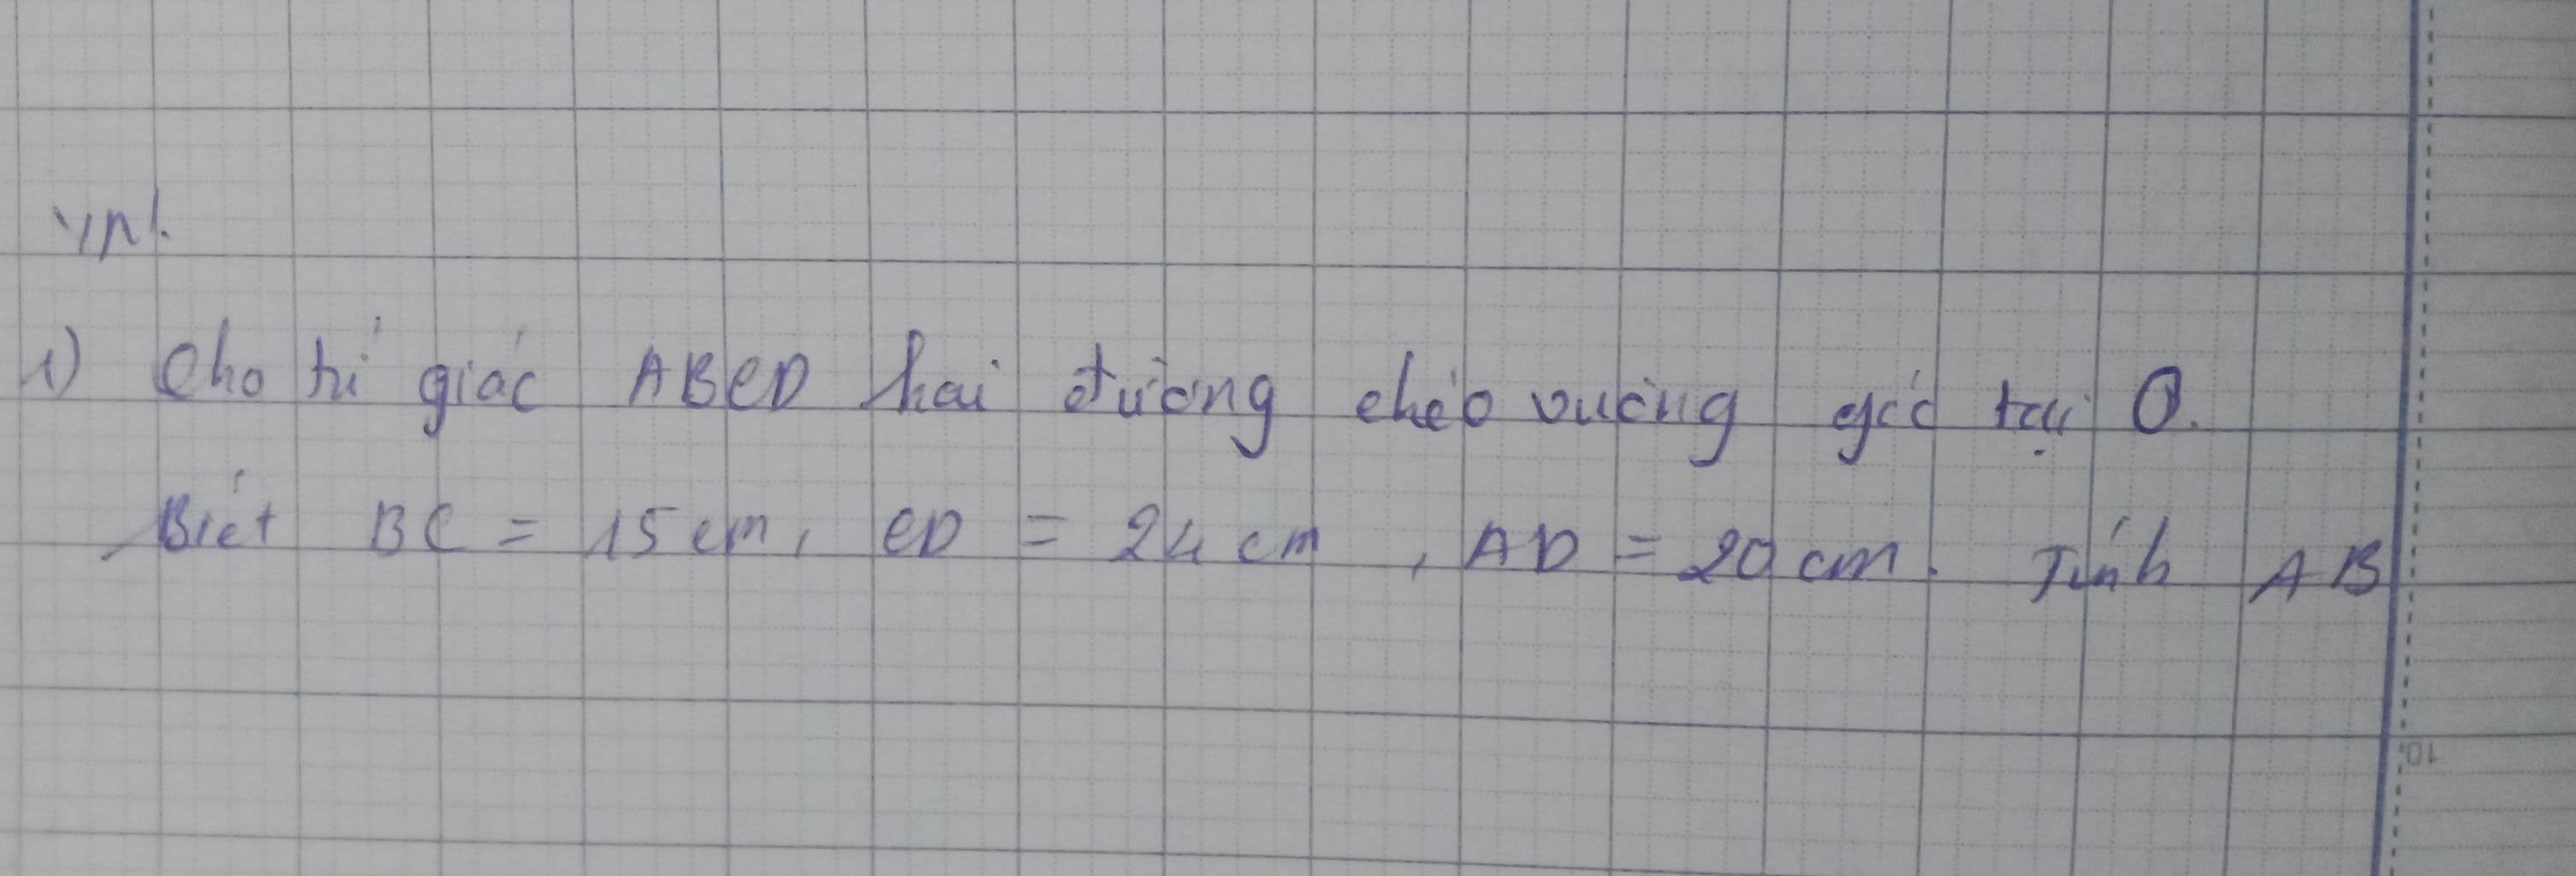 VN!
1) Cho tứ giác ABCD hai đường chéo vuông góc tại O.
Biết BC = 15 cm, CD = 24 cm, AD = 20 cm. Tính AB
10